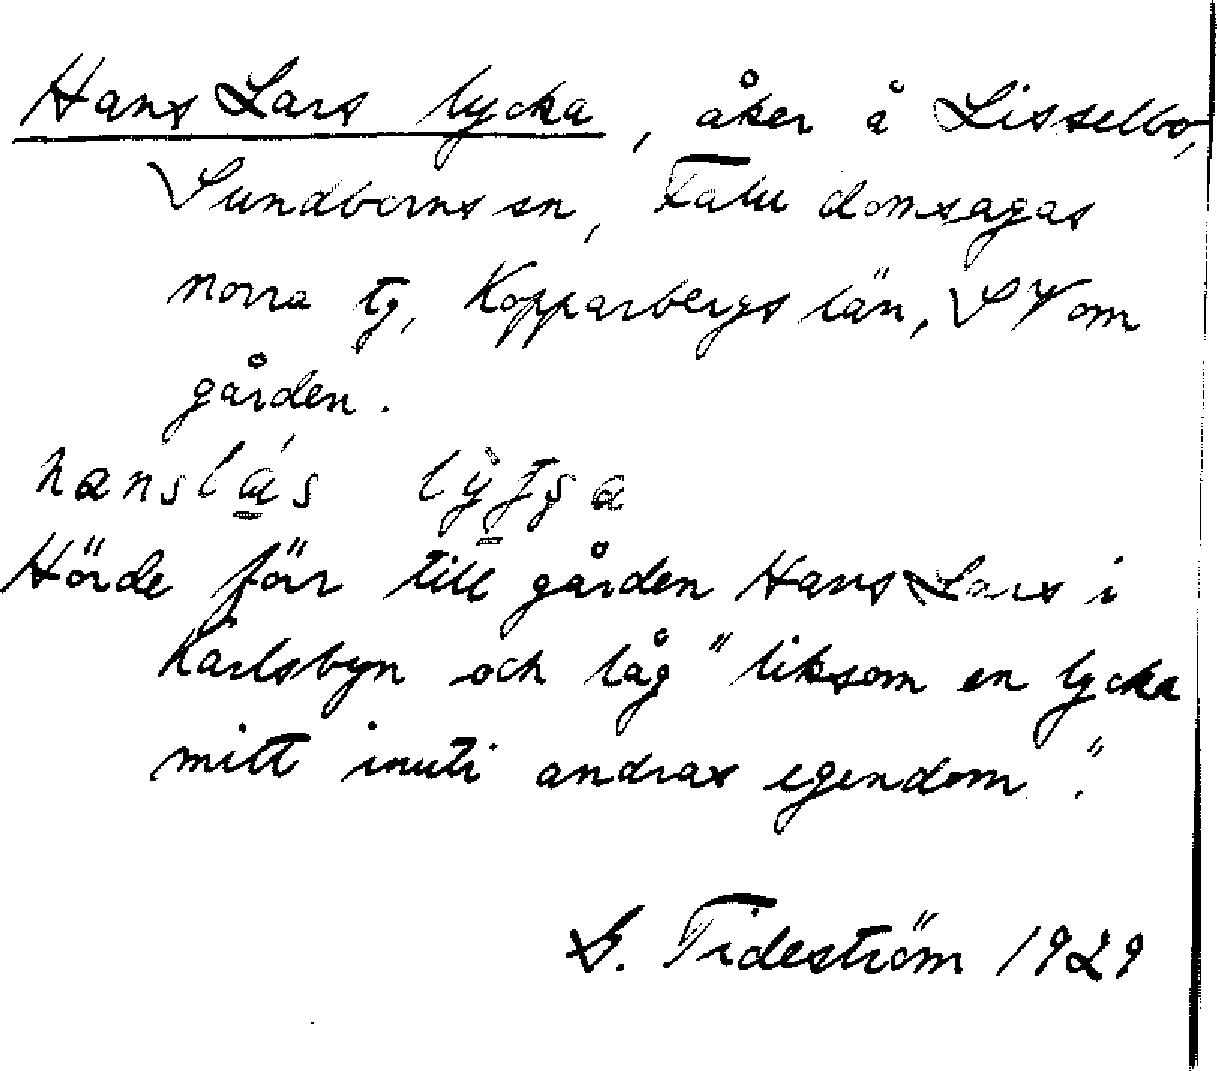 Hans Lars lycka, åker å Lisselbo,
Sundborns sn, Falu domsagas
norra tg, Kopparbergs län, SV om
gården.
hanslás lỳtʃa
Hörde förr till gården Hans Lars i
Karlsbyn och låg "liksom en lycka
mitt inuti andras egendom".
G. Tideström 1929